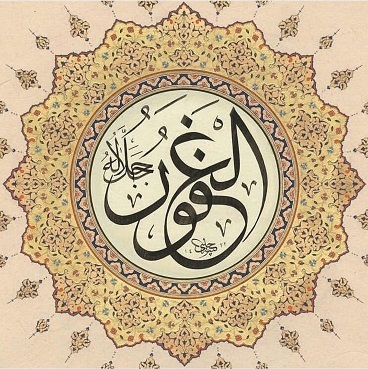 الغفور
جل جلاله